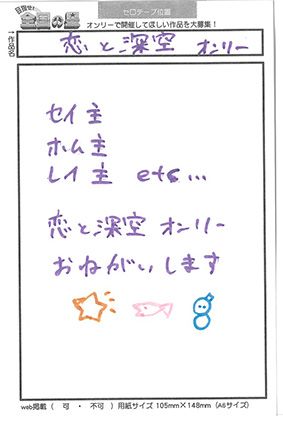 セロテープ位置
目指せ!! 全国の星
オンリーで開催してほしい作品を大募集!
↑作品名
恋と深空 オンリー
セイ主
ホム主
レイ主 etc...
恋と深空 オンリー
おねがいします
web掲載 ( 可 ・ 不可 ) 用紙サイズ 105mm×148mm (A6サイズ)